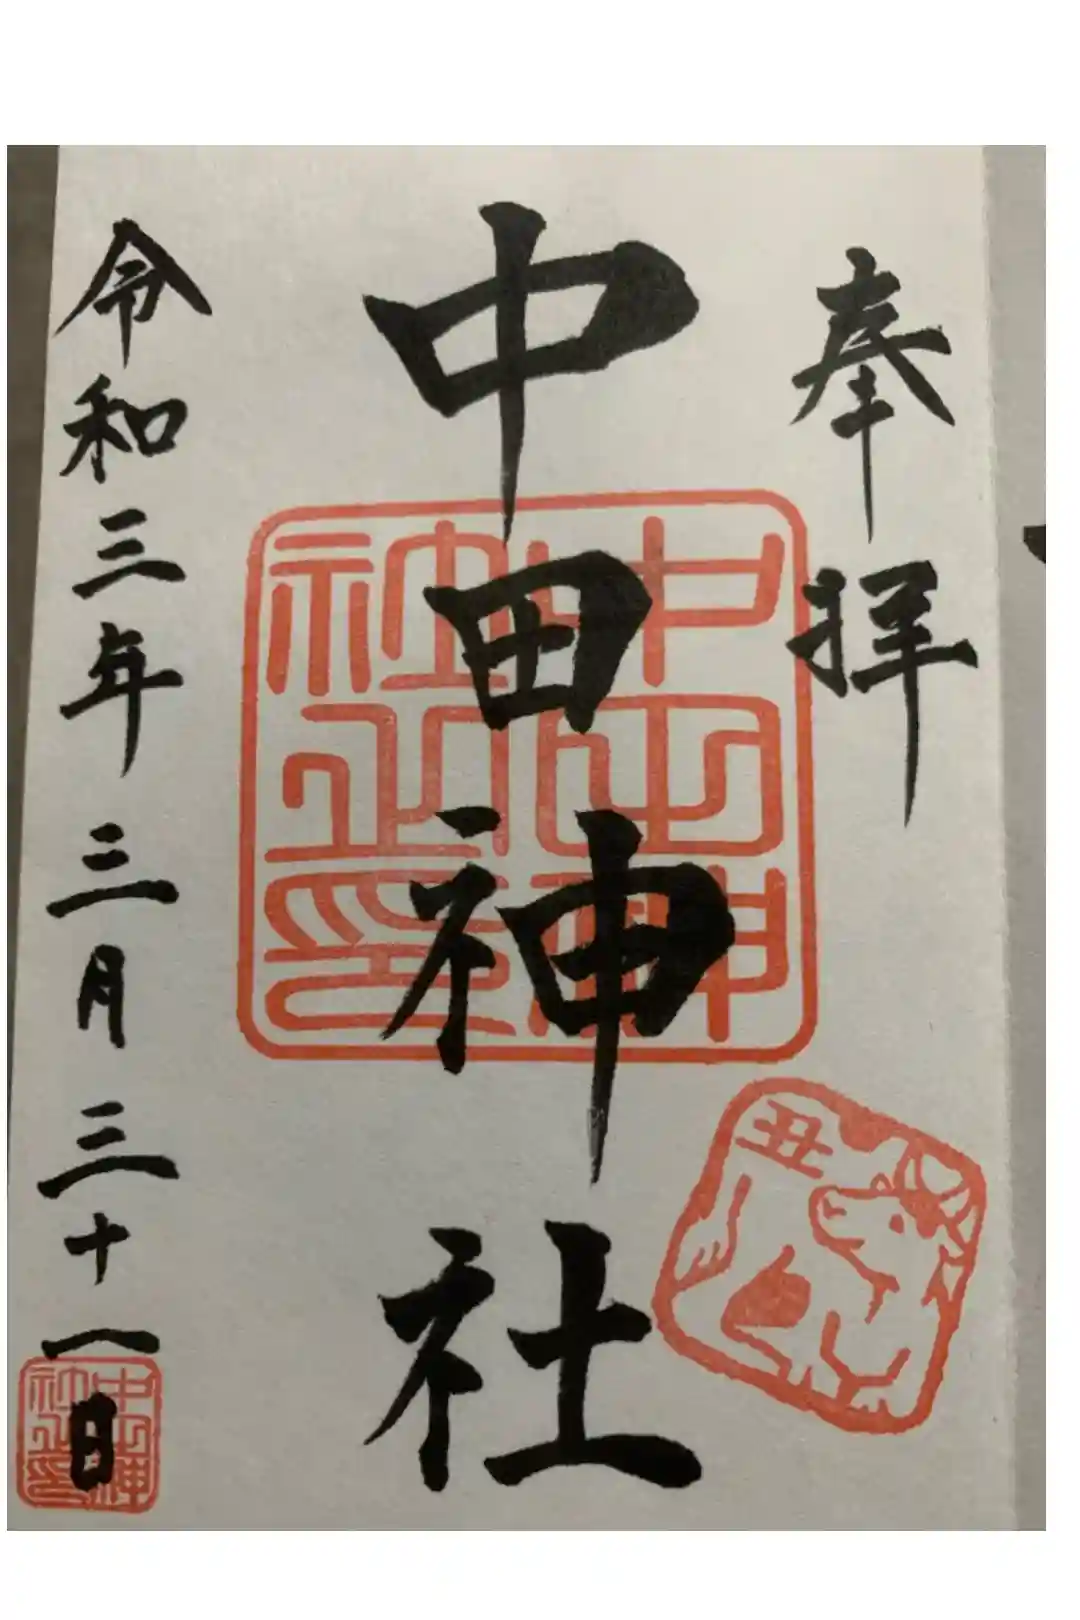 奉拝
中田神社
中田神社之印
丑
令和三年三月三十一日